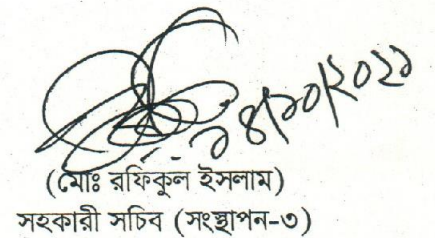 ১৪/১০/২০২১
(মোঃ রফিকুল ইসলাম)
সহকারী সচিব (সংস্থাপন-৩)